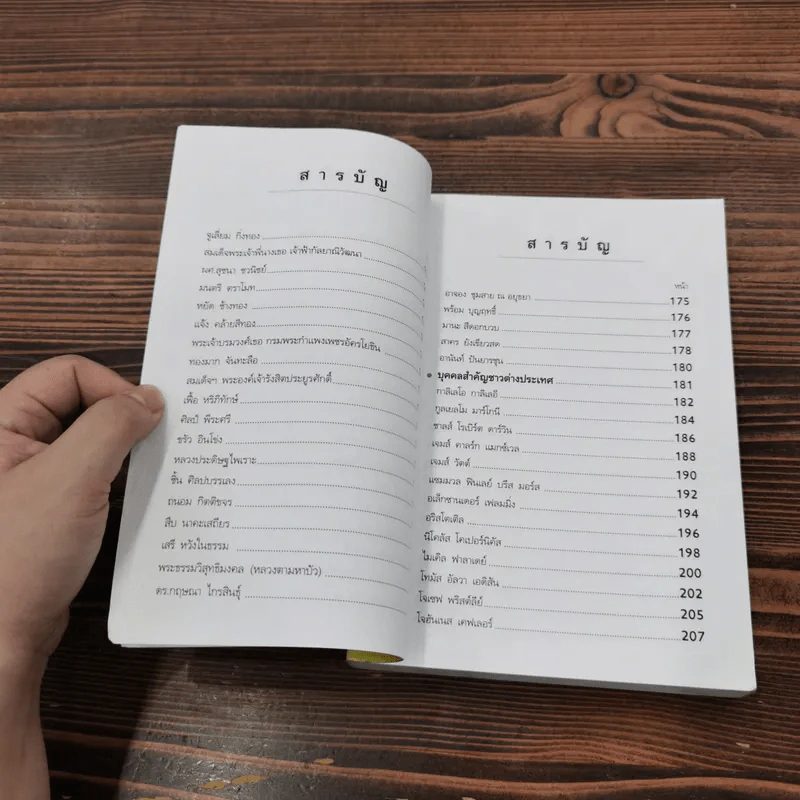 สารบัญ
จูเลี่ยม กิ่งทอง
สมเด็จพระเจ้าพี่นางเธอ เจ้าฟ้ากัลยาณิวัฒนา
ผศ.สุชนา ชวนิชย์
มนตรี ตราโมท
หยัด ช้างทอง
แจ้ง คล้ายสีทอง
พระเจ้าบรมวงศ์เธอ กรมพระกำแพงเพชรอัครโยธิน
ทองมาก จันทะลือ
สมเด็จฯ พระองค์เจ้ารังสิตประยูรศักดิ์
เฟื้อ หริภิทักษ์
ศิลป์ พีระศรี
ขรัว อินโข่ง
หลวงประดิษฐไพเราะ
ชิ้น ศิลปบรรเลง
ถนอม กิตติขจร
สืบ นาคะเสถียร
เสรี หวังในธรรม
พระธรรมวิสุทธิมงคล (หลวงตามหาบัว)
ดร.กฤษณา ไกรสินธุ์
สารบัญ
หน้า
อาจอง ชุมสาย ณ อยุธยา 175
พร้อม บุญฤทธิ์ 176
มานะ สีดอกบวบ 177
สาคร ยังเขียวสด 178
อานันท์ ปันยารชุน 180
• บุคคลสำคัญชาวต่างประเทศ 181
กาลิเลโอ กาลิเลอี 182
กูลเยลโม มาร์โกนี 184
ชาลส์ โรเบิร์ต ดาร์วิน 186
เจมส์ คาลร์ก แมกซ์เวล 188
เจมส์ วัตต์ 190
แซมมวล ฟินเลย์ บรีส มอร์ส 192
อเล็กซานเดอร์ เฟลมมิ่ง 194
อริสโตเติล 196
นิโคลัส โคเปอร์นิคัส 198
ไมเคิล ฟาลาเดย์ 200
โทมัส อัลวา เอดิสัน 202
โจเซฟ พริสต์ลีย์ 205
โจฮันเนส เคฟเลอร์ 207